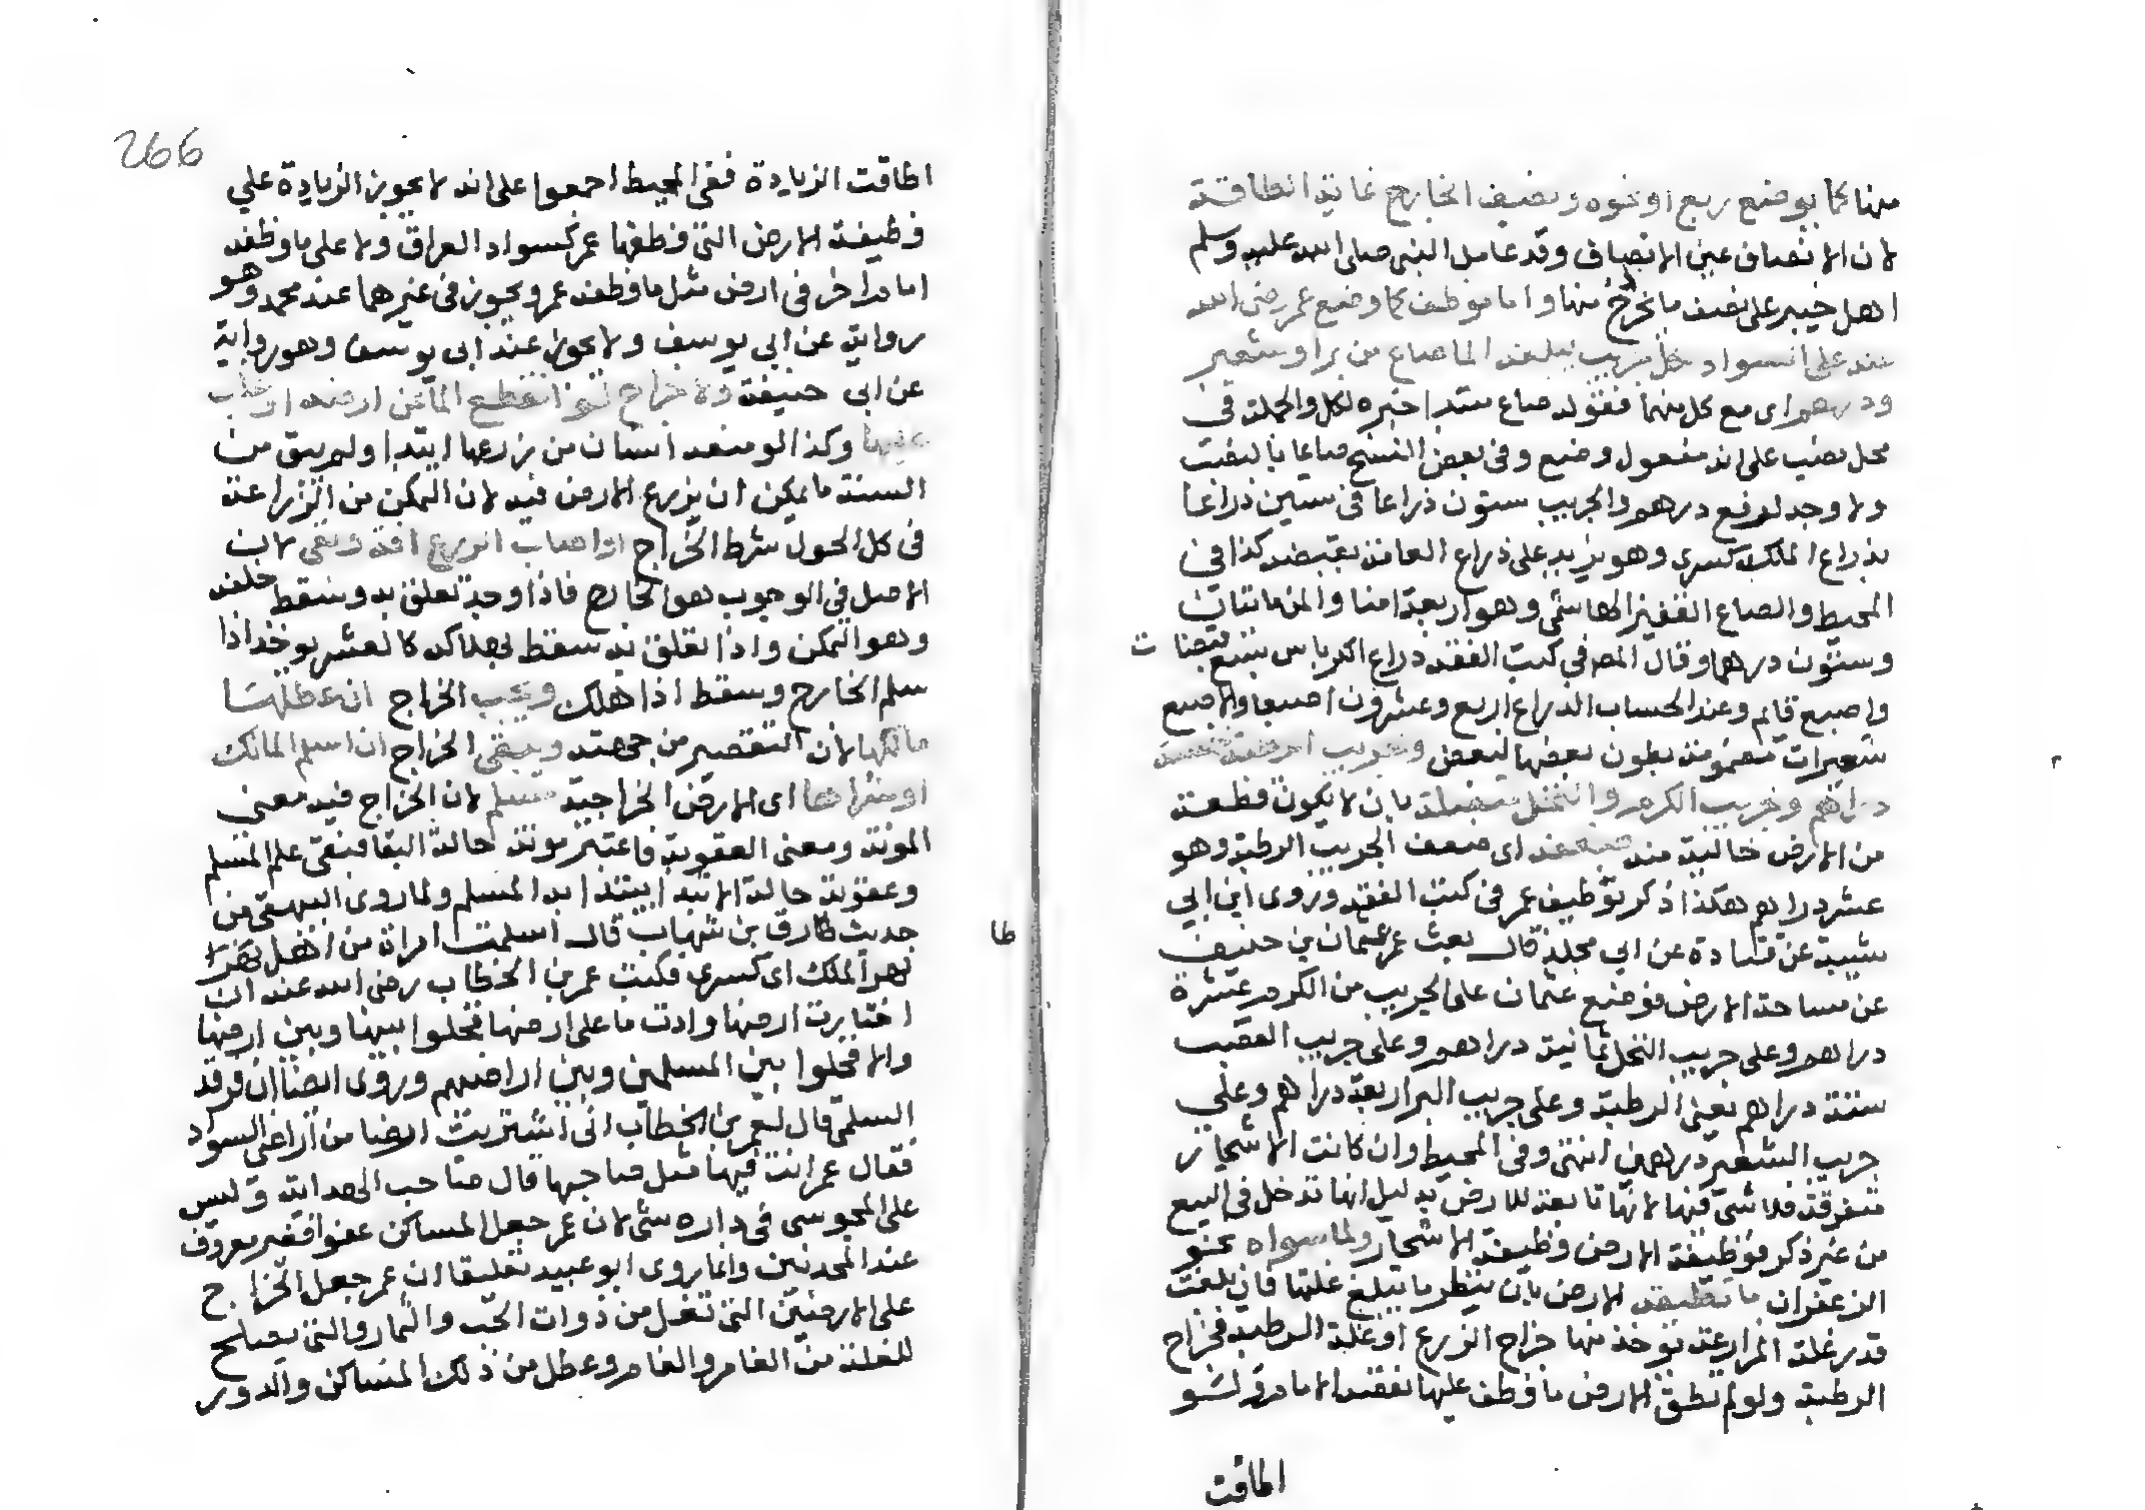 منها كما يوضع ربع او نحوه ونصف الخارج غاية الطاقة
لان الانصاف عين الانصاف وقد عامل النبي صلى الله عليه وسلم
اهل خيبر على نصف ما يخرج منها واما موظف كما وضع عمر رضي الله
عنه على السواد لكل جريب يبلغه الما صاع من بر او شعير
ودرهم اي مع كل منهما فقوله صاع مبتدا خبره لكل والجملة في
محل نصب على انه مفعول وضع وفي بعض النسخ صاعا بالنصب
ولا وجه لرفع درهم والجريب ستون ذراعا في ستين ذراعا
بذراع الملك كسرى وهو يزيد على ذراع العامة بقبضة كذا في
المحيط والصاع القفيز الهاشمي وهو اربعة امنا والمن مايتان
وستون درهما وقال المص في كتب الفقه ذراع الكرباس سبع قبضات
واصبع قايم وعند الحساب الذراع اربع وعشرون اصبعا والاصبع
شعيرات مضمومة بطون بعضها لبعض ولجريب الرطبة خمسة
دراهم ولجريب الكرم والنخل متصلة بان لا يكون قطعة
من الارض خالية منه ضعفه اي ضعف الجريب الرطبة وهو
عشر دراهم هكذا ذكر توظيف عمر في كتب الفقه وروى ابن ابي
شيبة عن قتادة عن ابي مجلز قال بعث عمر عثمان بن حنيف
عن مساحة الارض فوضع عثمان على الجريب من الكرم عشرة
دراهم وعلى جريب النخل ثمانية دراهم وعلى جريب القصب
ستة دراهم يعني الرطبة وعلى جريب البر اربعة دراهم وعلى
جريب الشعير درهمين انتهى وفي المحيط وان كانت الاشجار
متفرقة فلا شئ فيها لانها تابعة للارض بدليل انها تدخل في البيع
من غير ذكر فوظيفة الارض وظيفة الاشجار ولما سواه نحو
الزعفران ما تطيقه الارض بان ينظر ما تبلغ غلتها فان بلغت
قدر غلة المزارعة يوخذ منها خراج الزرع او غلة الرطبة فخراج
الرطبة ولو لم تطق الارض ما وظف عليها نقصه الامام ولو
اطاقت
اطاقت الزيادة ففي المحيط اجمعوا على انه لا يجوز الزيادة على
وظيفة الارض التي وظفها عمر كسواد العراق ولا على ما وظفه
امام اخر في ارض مثل ما وظفه عمر ويجوز في غيرها عند محمد وهو
رواية عن ابي يوسف ولا يجوز عند ابي يوسف وهو رواية
عن ابي حنيفة ولا خراج لو انقطع الما عن ارضه او غلب
عليها وكذا لو منعه انسان من زرعها ابتدا ولم يبق من
السنة ما يمكن ان يزرع الارض فيه لان التمكن من الزراعة
في كل الحول شرط الخراج او اصاب الزرع افة لان
الاصل في الوجوب هو الخارج فاذا وجد تعلق به وسقط خلفه
وهو التمكن واذا تعلق به سقط بهلاكه كالعشر يوخذ اذا
سلم الخارج وسقط اذا هلك ويجب الخراج ان عطلها
مالكها لان التقصير من جهته ويبقى الخراج ان اسلم المالك
او شراها اي الارض الخراجية مسلم لان الخراج فيه معنى
المونة ومعنى العقوبة فاعتبر مونة حالة البقا فبقى على المسلم
وعقوبة حالة الابتدا ابتدا المسلم ولما روى البيهقي من
حديث طارق بن شهاب قال اسلمت امراة من اهل نهر
نهر الملك اي كسرى فكتب عمر بن الخطاب رضي الله عنه ان
اختارت ارضها وادت ما على ارضها فخلوا بينها وبين ارضها
والا فخلوا بين المسلمين وبين اراضيهم وروى ايضا ان فرقد
السلمي قال لعمر بن الخطاب اني اشتريت ارضا من اراضي السواد
فقال عمر انت فيها مثل صاحبها قال صاحب الهداية وليس
على المجوسي في داره شئ لان عمر جعل المساكن عفوا فغير معروف
عند المحدثين وانما روى ابو عبيد تعليقا ان عمر جعل الخراج
على الارضين التي تغل من ذوات الحب والثمار والتي تصلح
للغلة من العامر والغامر وعطل من ذلك المساكن والدور
طا
266